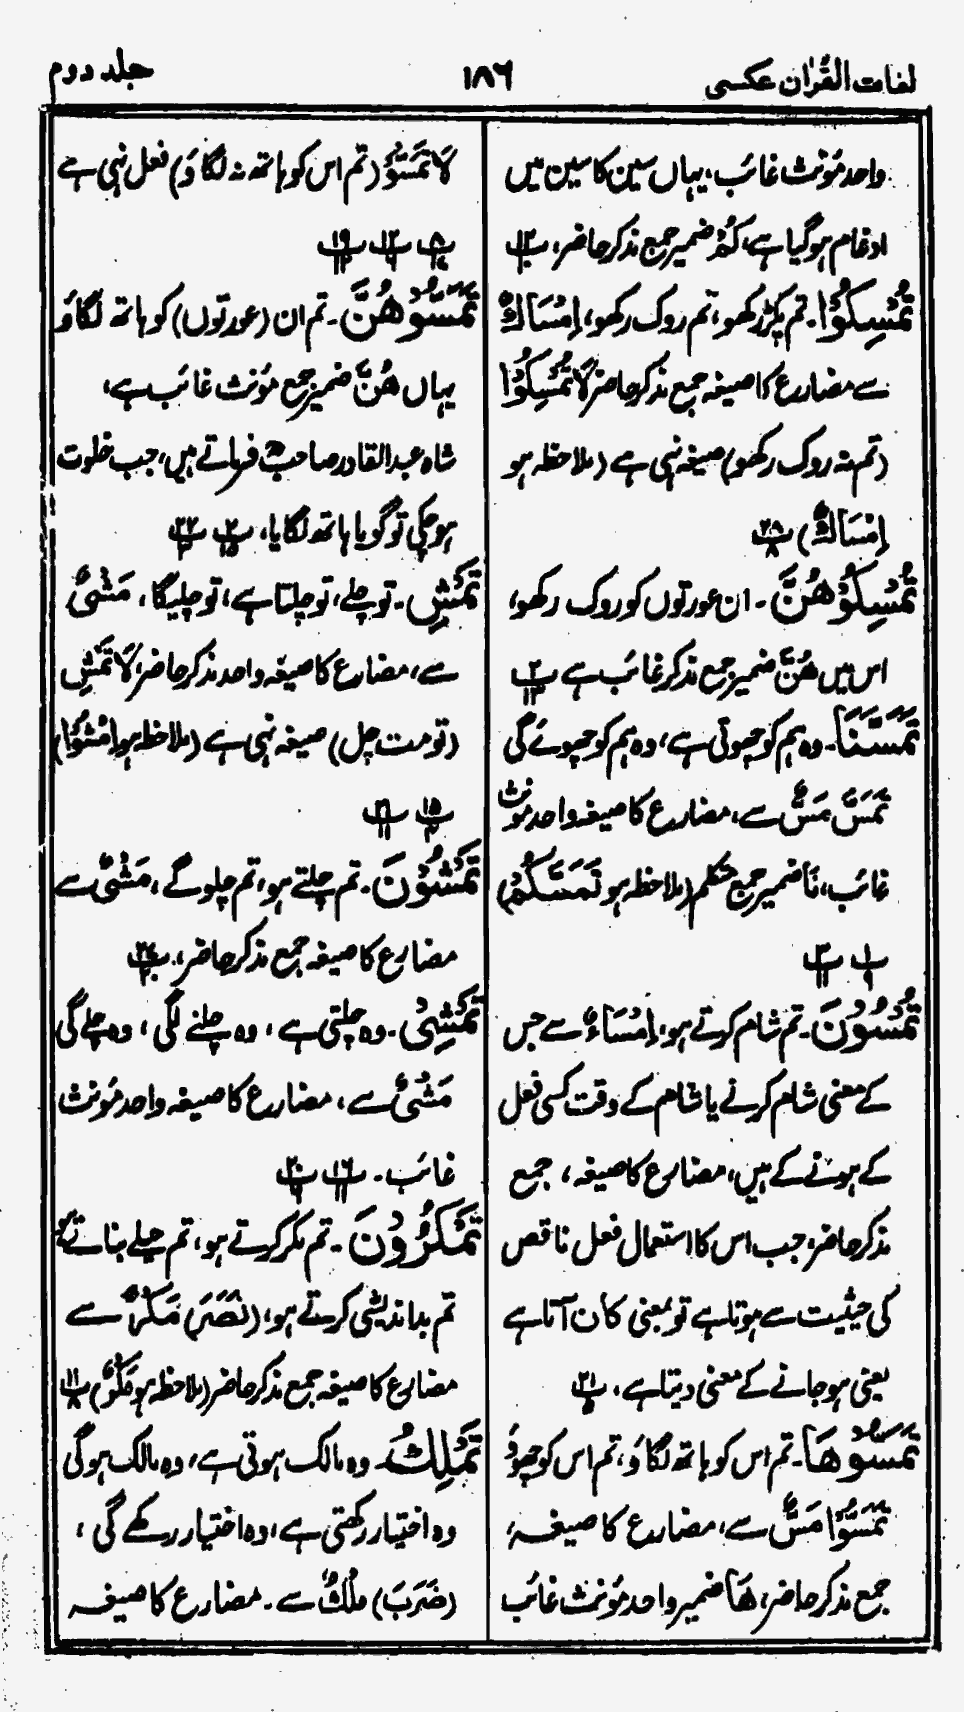 لغات القرآن عکسی ۱۸۶ جلد دوم
واحد مؤنث غائب، یہاں سین کا سین میں
ادغام ہوگیا ہے، کُمْ ضمیر جمع مذکر حاضر،
تُمْسِكُوْا۔ تم پکڑ رکھو، تم روک رکھو، اِمْسَاكٌ
سے مضارع کا صیغہ جمع مذکر حاضر لَا تُمْسِكُوْا
(تم نہ روک رکھو) صیغہ نہی ہے (ملاحظہ ہو
اِمْسَاكٌ) پ ۲۸/۸
تُمْسِكُوْهُنَّ۔ ان عورتوں کو روک رکھو،
اس میں هُنَّ ضمیر جمع مذکر غائب ہے پ ۲/۱۳
تَمَسَّنَا۔ وہ ہم کو چھوتی ہے، وہ ہم کو چھوئے گی
تَمَسَّ مَسٌّ سے، مضارع کا صیغہ واحد مؤنث
غائب، نَا ضمیر جمع متکلم (ملاحظہ ہو تَمَسَّكُمْ)
پ ۱/۹ پ ۳/۱۱
تُمْسُوْنَ۔ تم شام کرتے ہو، اِمْسَاءٌ سے جس
کے معنی شام کرنے یا شام کے وقت کسی فعل
کے ہونے کے ہیں، مضارع کا صیغہ، جمع
مذکر حاضر، جب اس کا استعمال فعل ناقص
کی حیثیت سے ہوتا ہے تو بمعنی کان آتا ہے
یعنی ہو جانے کے معنی دیتا ہے، پ ۲۱
تَمَسُّوْهَا۔ تم اس کو ہاتھ لگاؤ، تم اس کو چھوؤ
تَمَسُّوْا مَسٌّ سے، مضارع کا صیغہ،
جمع مذکر حاضر، هَا ضمیر واحد مؤنث غائب
لَا تَمَسُّوْ (تم اس کو ہاتھ نہ لگاؤ) فعل نہی ہے
پ ۸ پ ۱۲ پ ۱۹
تَمَسُّوْهُنَّ۔ تم ان (عورتوں) کو ہاتھ لگاؤ
یہاں هُنَّ ضمیر جمع مؤنث غائب ہے،
شاہ عبدالقادر صاحبؒ فرماتے ہیں، جب خلوت
ہو چکی تو گویا ہاتھ لگایا، پ ۲/۱۵ پ ۲۲/۳
تَمْشِ۔ تو چلے، تو چلتا ہے، تو چلیگا، مَشْیٌ
سے، مضارع کا صیغہ واحد مذکر حاضر، لَا تَمْشِ
(تو مت چل) صیغہ نہی ہے (ملاحظہ ہو اِمْشُوْا)
پ ۱۵/۴ پ ۲۱/۱۱
تَمْشُوْنَ۔ تم چلتے ہو، تم چلو گے، مَشْیٌ سے
مضارع کا صیغہ جمع مذکر حاضر،
تَمْشِیْ۔ وہ چلتی ہے، وہ چلنے لگی، وہ چلے گی
مَشْیٌ سے، مضارع کا صیغہ واحد مؤنث
غائب۔ پ ۱۶/۱۱ پ ۲۰
تَمْكُرُوْنَ۔ تم مکر کرتے ہو، تم حیلے بناتے ہو
تم بداندیشی کرتے ہو، (نَصَرَ) مَكْرٌ سے
مضارع کا صیغہ جمع مذکر حاضر (ملاحظہ ہو مَكْرٌ) پ ۱۱/۸
تَمْلِكُ۔ وہ مالک ہوتی ہے، وہ مالک ہوگی
وہ اختیار رکھتی ہے، وہ اختیار رکھے گی،
(ضَرَبَ) مِلْكٌ سے۔ مضارع کا صیغہ